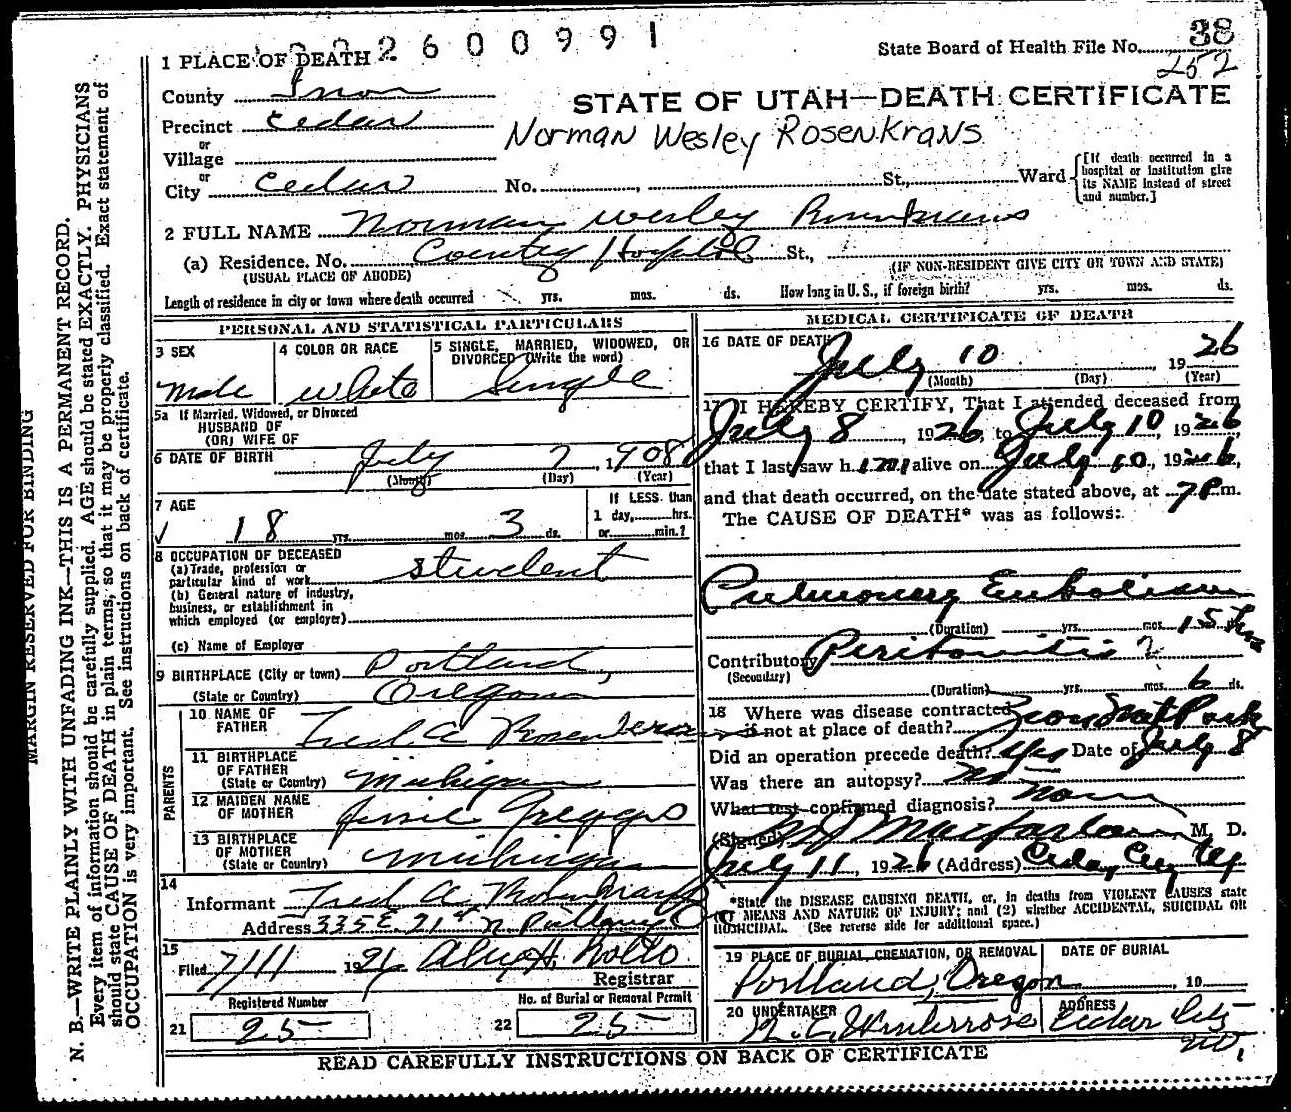 2600991
State Board of Health File No. 38
252
1 PLACE OF DEATH
County Iron
STATE OF UTAH—DEATH CERTIFICATE
Precinct Cedar
Norman Wesley Rosenkrans
or
Village
or
City Cedar No. , St., Ward [If death occurred in a hospital or institution give its NAME instead of street and number.]
2 FULL NAME Norman Wesley Rosenkrans
(a) Residence. No. County Hospital St.,
(USUAL PLACE OF ABODE) (IF NON-RESIDENT GIVE CITY OR TOWN AND STATE)
Length of residence in city or town where death occurred yrs. mos. ds. How long in U. S., if foreign birth? yrs. mos. ds.
PERSONAL AND STATISTICAL PARTICULARS
3 SEX
Male
4 COLOR OR RACE
White
5 SINGLE, MARRIED, WIDOWED, OR
DIVORCED (Write the word)
Single
5a If Married, Widowed, or Divorced
HUSBAND OF
(OR) WIFE OF
6 DATE OF BIRTH July 7, 1908
(Month) (Day) (Year)
7 AGE
18 yrs. mos. 3 ds.
If LESS than
1 day, hrs.
or min.?
8 OCCUPATION OF DECEASED
(a) Trade, profession or
particular kind of work student
(b) General nature of industry,
business, or establishment in
which employed (or employer)
(c) Name of Employer
9 BIRTHPLACE (City or town) Portland,
(State or Country) Oregon
PARENTS
10 NAME OF
FATHER Fred A Rosenkrans
11 BIRTHPLACE
OF FATHER
(State or Country) Michigan
12 MAIDEN NAME
OF MOTHER Jessie Greggs
13 BIRTHPLACE
OF MOTHER
(State or Country) Michigan
14
Informant Fred A Rosenkrans
Address 335 E. 21st N. Portland, O
15
Filed 7/11 1926
Registrar
Registered Number
21 25
No. of Burial or Removal Permit
22 25
MEDICAL CERTIFICATE OF DEATH
16 DATE OF DEATH
July 10, 1926
(Month) (Day) (Year)
17 I HEREBY CERTIFY, That I attended deceased from
July 8, 1926, to July 10, 1926,
that I last saw him alive on July 10, 1926,
and that death occurred, on the date stated above, at 7 P. m.
The CAUSE OF DEATH* was as follows:
Pulmonary Embolism
(Duration) yrs. mos. ds.
Contributory Peritonitis ?
(Secondary)
(Duration) yrs. mos. 6 ds.
18 Where was disease contracted Zion Nat Park
if not at place of death?
Did an operation precede death? Yes Date of July 8
Was there an autopsy? no
What test confirmed diagnosis? None
(Signed) M J Macfarlane M. D.
July 11, 1926 (Address) Cedar City Ut
*State the DISEASE CAUSING DEATH, or, in deaths from VIOLENT CAUSES state
(1) MEANS AND NATURE OF INJURY; and (2) whether ACCIDENTAL, SUICIDAL OR
HOMICIDAL. (See reverse side for additional space.)
19 PLACE OF BURIAL, CREMATION, OR REMOVAL
Portland, Oregon
DATE OF BURIAL
, 19
20 UNDERTAKER
ADDRESS
Cedar City
READ CAREFULLY INSTRUCTIONS ON BACK OF CERTIFICATE
MARGIN RESERVED FOR BINDING
N. B.—WRITE PLAINLY WITH UNFADING INK—THIS IS A PERMANENT RECORD.
Every item of information should be carefully supplied. AGE should be stated EXACTLY. PHYSICIANS
should state CAUSE OF DEATH in plain terms, so that it may be properly classified. Exact statement of
OCCUPATION is very important. See instructions on back of certificate.